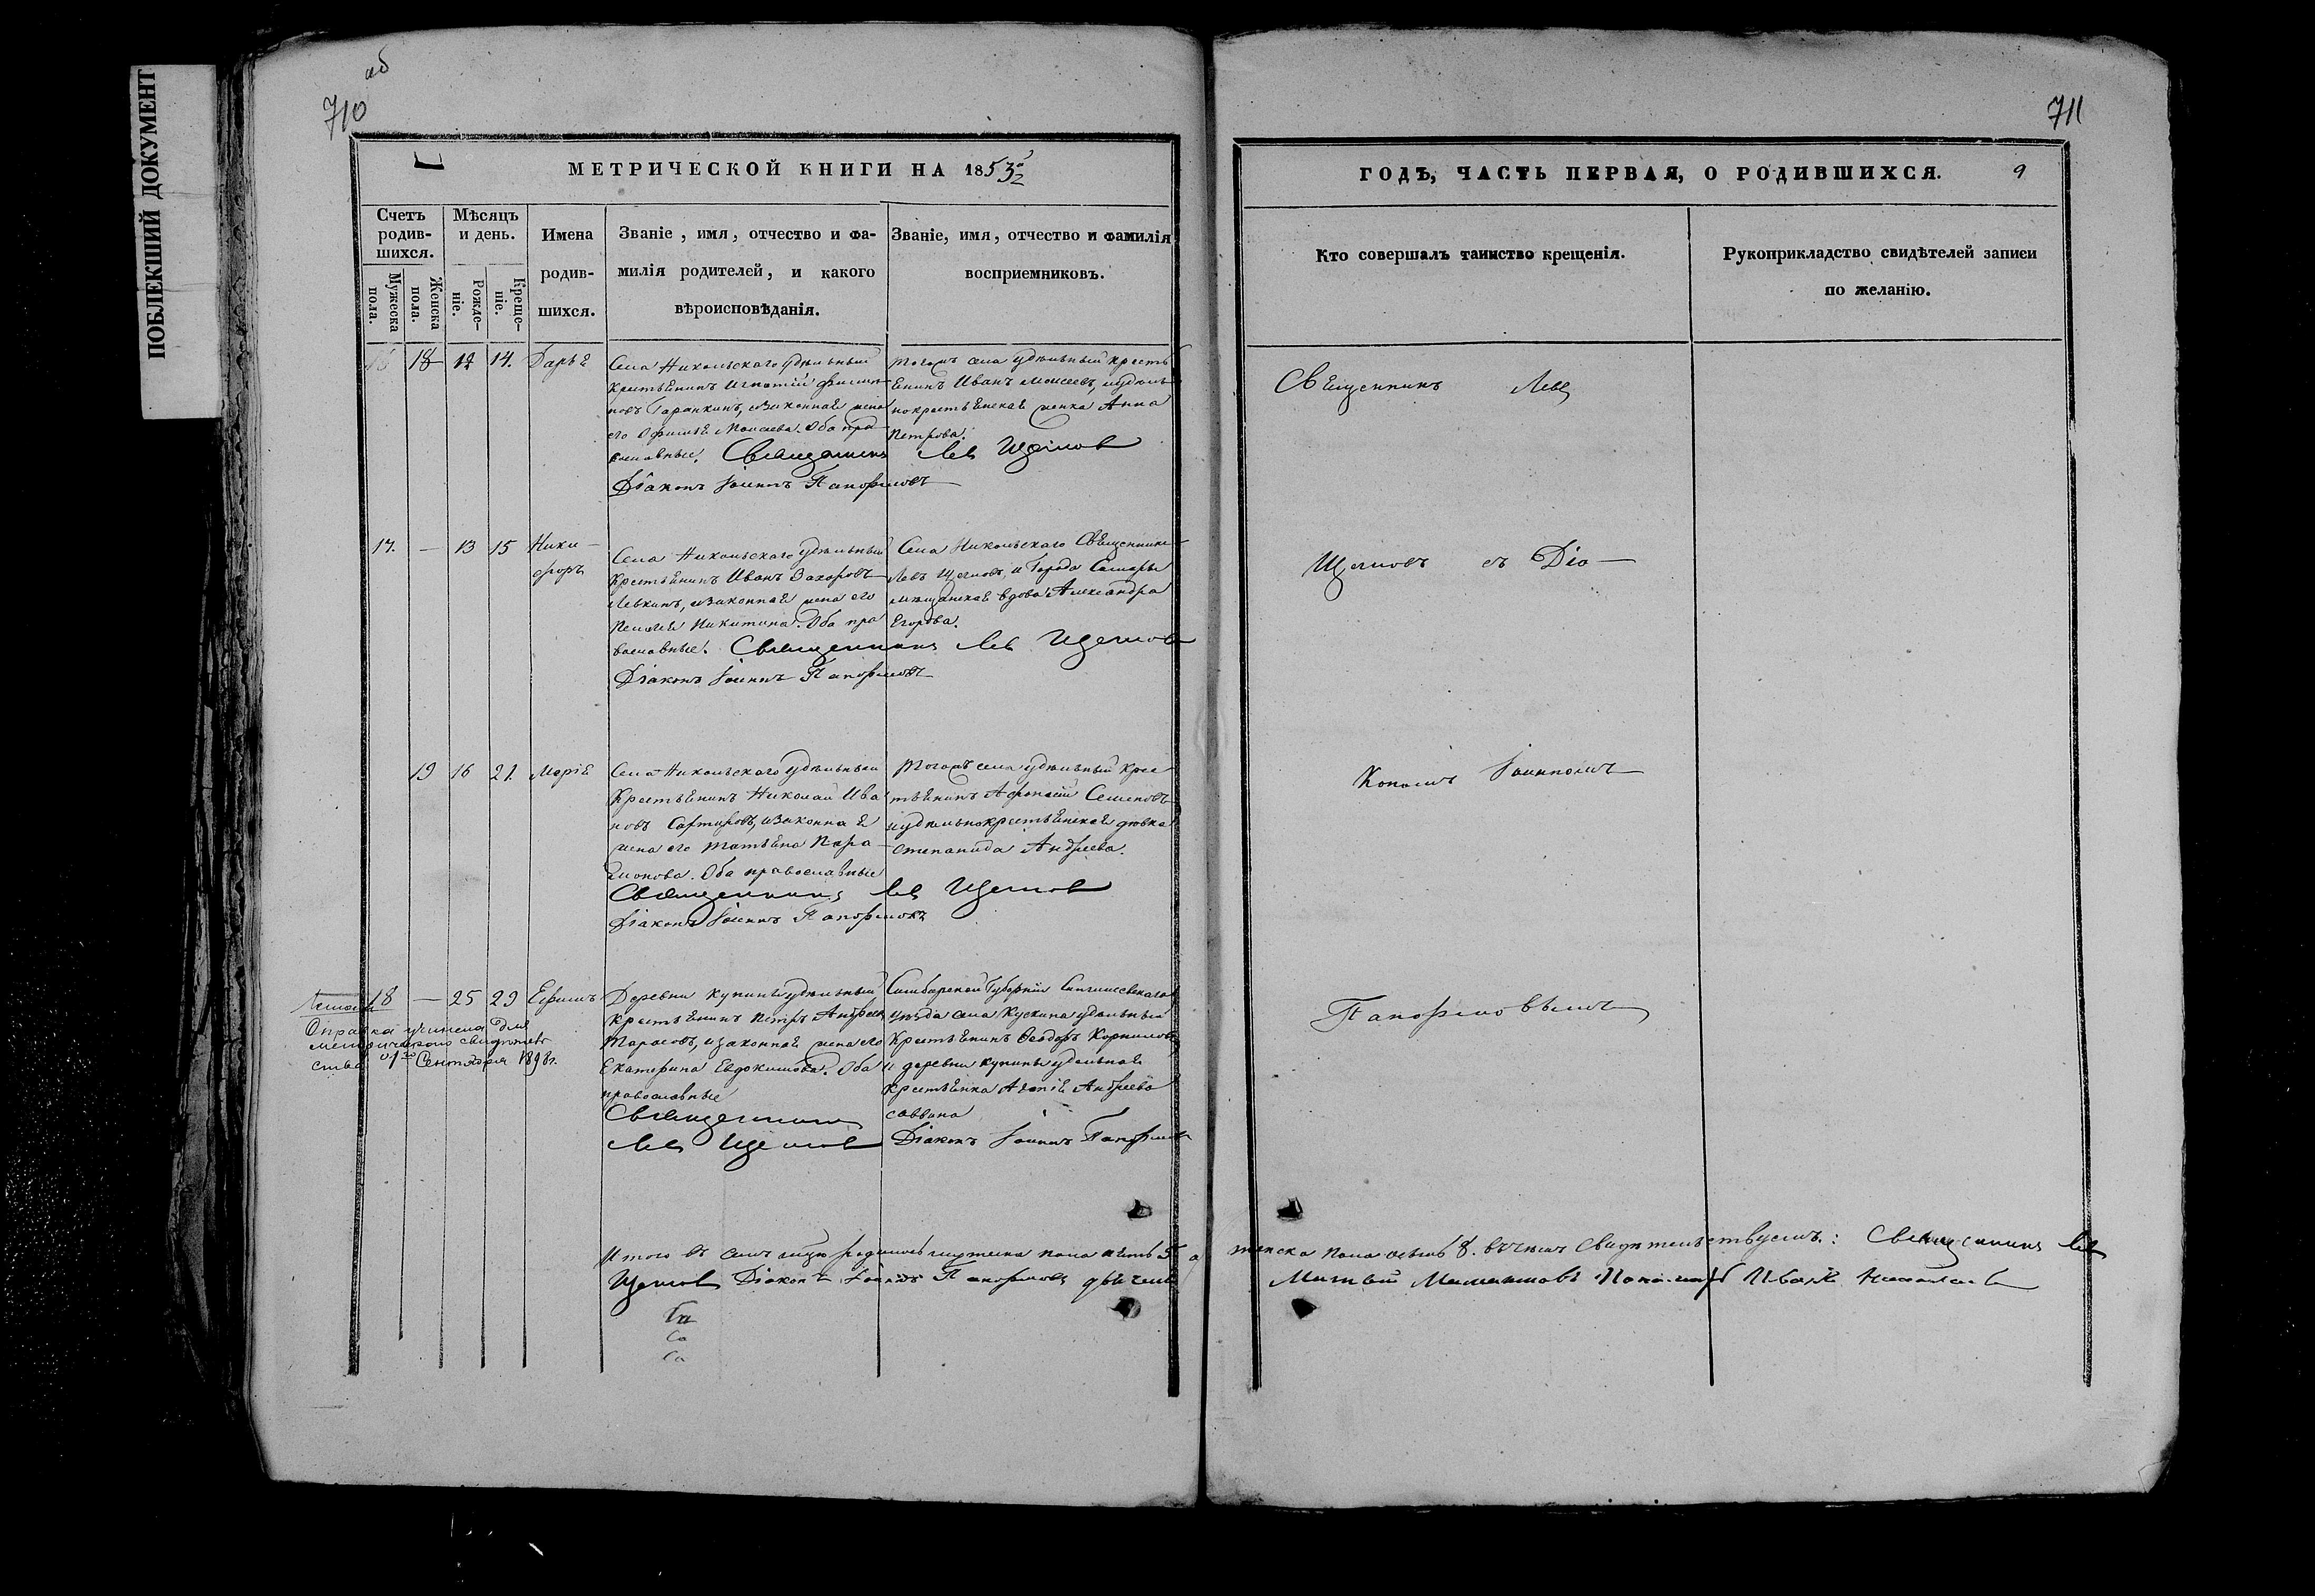 ПОБЛЕКШИЙ ДОКУМЕНТ
об
710
МЕТРИЧЕСКОЙ КНИГИ НА 1853
Счетъ родив-шихся.
Мужеска пола.
Женска пола.
Мѣсяцъ и день.
Рожде-ніе.
Креще-ніе.
Имена
родив-
шихся.
Званіе, имя, отчество и фа-
милія родителей, и какого
вѣроисповѣданія.
Званіе, имя, отчество и фамилія
воспріемниковъ.
18 12 14. Дарья
Села Никольскаго удѣльный
крестьянинъ Игнатій Филип-
повъ Гаранкинъ, изаконная жена
его Офимія Моисеева. Оба пра-
вославные. Священникъ Левъ Щегловъ
Діаконъ Іоаннъ Панормовъ
тогожъ села удѣльный кресть
янинъ Иванъ Моисеевъ, иудѣль
нокрестьянская женка Анна
Петрова.
17. — 13 15 Ники-
форъ
Села Никольскаго удѣльный
крестьянинъ Иванъ Захаровъ
Левкинъ, изаконная жена его
Никитина. Оба пра
вославные. Священникъ Левъ Щегловъ
Діаконъ Іоаннъ Панормовъ
Села Никольскаго Священникъ
Левъ Щегловъ, и Города Самары
мѣщанская вдова Александра
Егорова.
19 16 21. Марія
Села Никольскаго удѣльный
Крестьянинъ Николай Ива
новъ изаконная
жена его Татьяна Пара-
монова. Оба православные
Священникъ Левъ Щегловъ
Діаконъ Іоаннъ Панормовъ
Тогожъ села удѣльный крес
тьянинъ Афонасій Семеновъ
иудѣльнокрестьянская дѣвка
Степанида Андреева.
18 — 25 29 Ефимъ
Справка учинена для
метрическаго свидѣтель
ства 1го Сентября 1898г.
Деревни Купины удѣльный
крестьянинъ Петръ Андреевъ
Тарасовъ, изаконная жена его
Екатерина Евдокимова. Оба
православные
Священникъ
Левъ Щегловъ
Симбирской Губерніи Сенгилеевскаго
уѣзда села Кускина удѣльный
Крестьянинъ Ѳеодоръ Корниловъ
и деревни купины удельная
крестьянка Андреева
саввина
Діаконъ Іоаннъ Панормовъ
Итого въ семъ мѣсяцѣ родилось мужеска пола пять 5 а
Щегловъ Діаконъ Іоаннъ Панормовъ
711
ГОДЪ, ЧАСТЬ ПЕРВАЯ, О РОДИВШИХСЯ. 9
Кто совершалъ таинство крещенія.
Рукоприкладство свидѣтелей записи
по желанію.
Священникъ Левъ
Щегловъ съ Діа—
кономъ Іоанномъ
Панормовымъ
женска пола осьмь 8. въчемъ свидѣтельствуемъ: Священникъ Левъ
Пономарь Иванъ